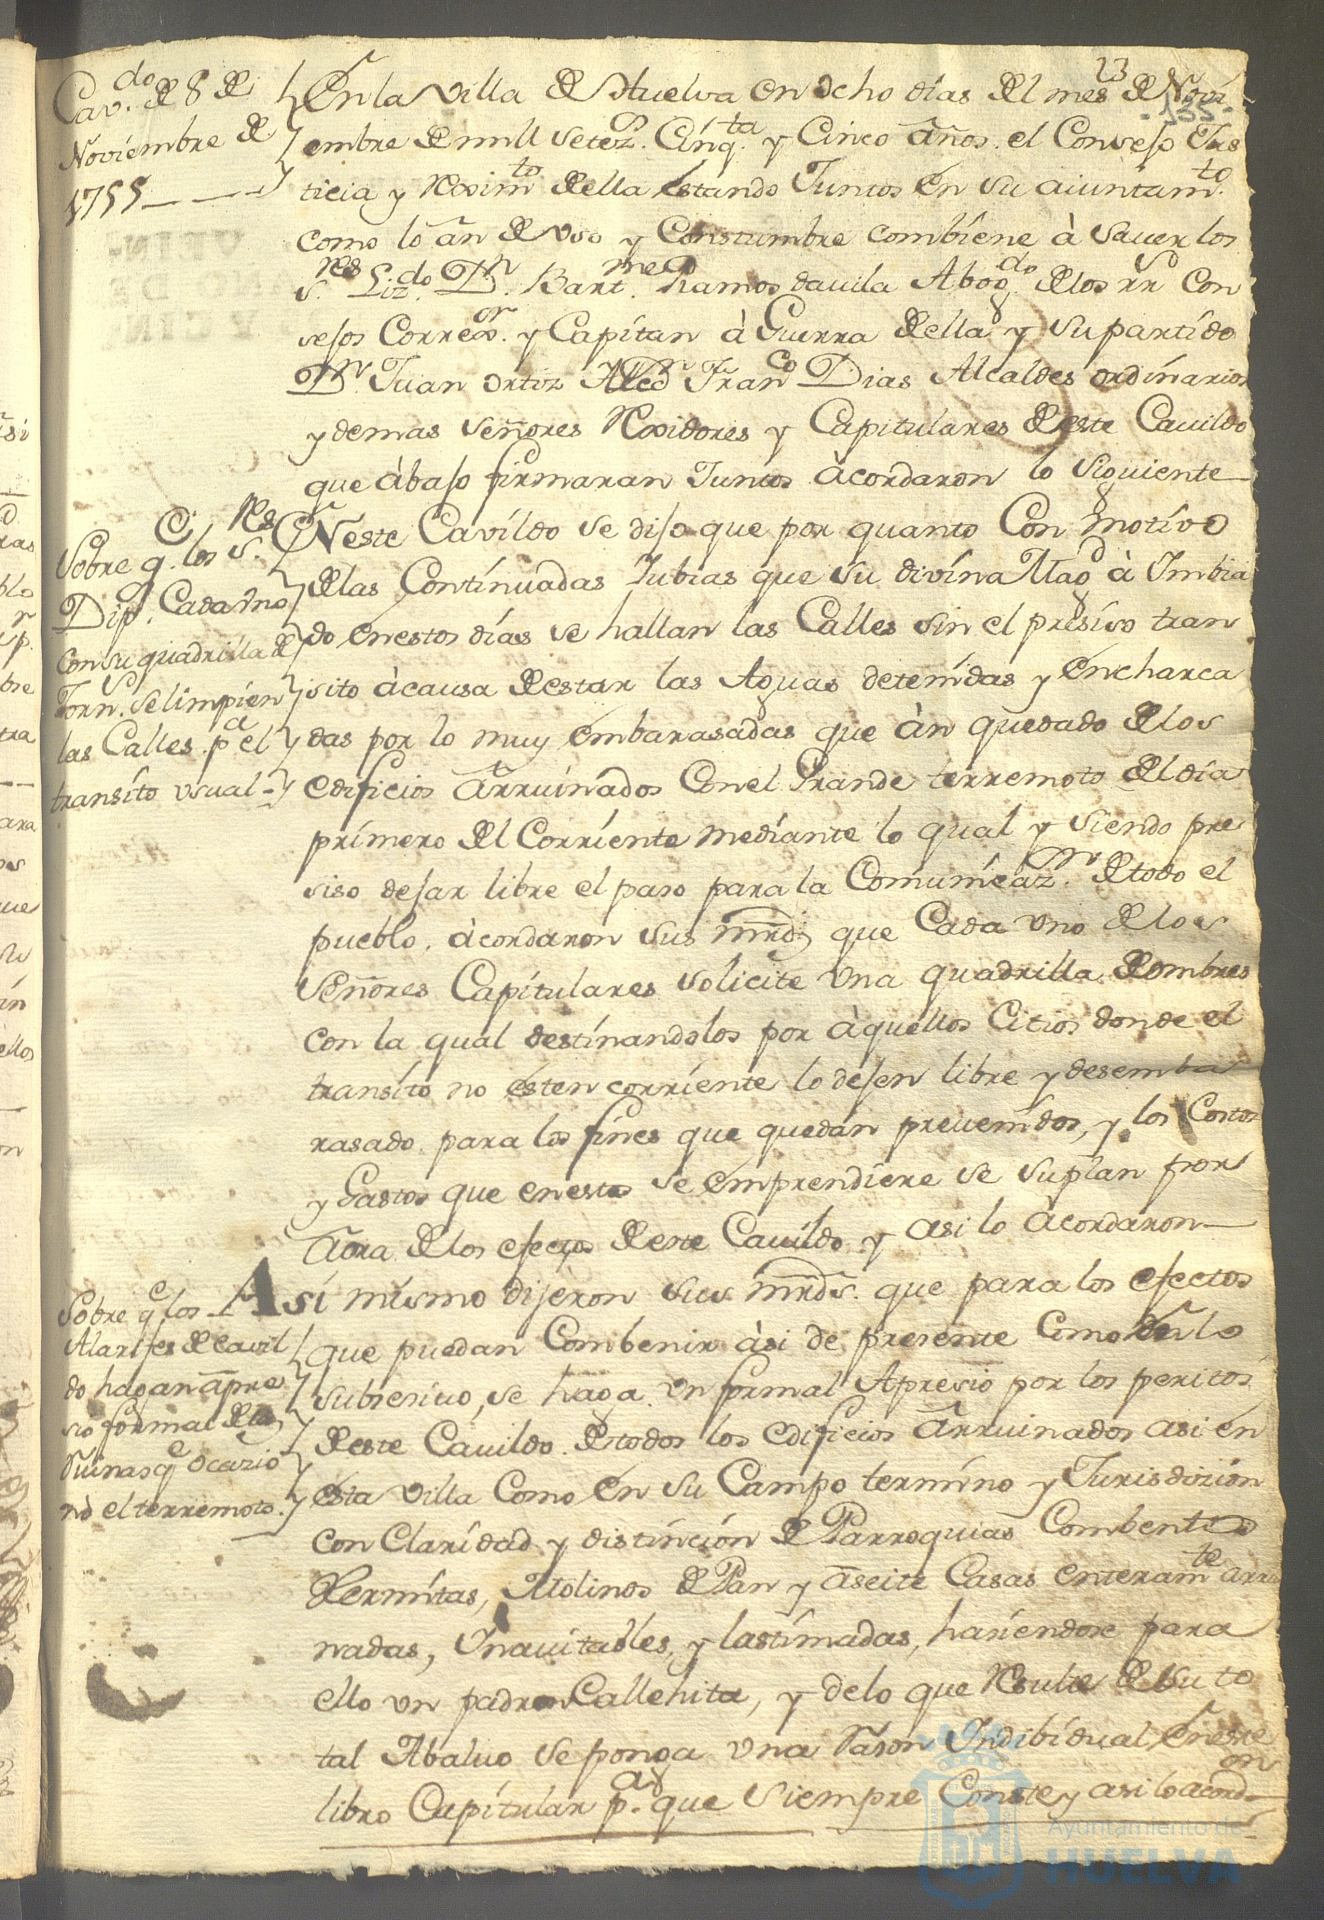 Cav.do de 8 de
Noviembre de
1755
23
135
En la villa de Huelva en ocho dias del mes de Novi
embre de mill setez.s Cinq.ta y Cinco años. el Consejo Jus
ticia y Reximto della estando Juntos en su aiuntam.to
como lo an de uso y Constumbre combiene à saver los
s.res Liz.do D.n Bart.me Ramos davila Abog.do de los rr.s Con
sejos Correx.or y Capitan à Guerra della y su partido
D.n Juan ortiz y D.n Fran.co Dias Alcaldes ordinarios
y demas señores Rexidores y Capitulares deeste Cauildo
que àbajo firmaran Juntos àcordaron lo siguiente
Sobre q.e los s.res
Dip.s Cada uno
con su quadrilla de
Jorn.s se limpien
las Calles p.a el
transito usual
En este Cavildo se dijo que por quanto Con motivo
de las Continuadas Lubias que su divina Mag.d à Imbia
do en estos dias se hallan las Calles sin el presiso tran
sito àcausa de estar las Aguas detenidas y encharca
das por lo muy embarasadas que àn quedado de los
edificios Arruinados Con el Grande terremoto del dia
primero del Corriente mediante lo qual y siendo pre
siso dejar libre el paso para la Comunicaz.n de todo el
pueblo. àcordaron sus mrds que Cada uno de los
señores Capitulares solicite una quadrilla de ombres
con la qual destinandolos por àquellos Citios donde el
transito no esten corriente lo dejen libre y desemba
rasado para los fines que quedan prevenidos, y los Costos
y Gastos que en esto se emprendiere se suplan por
àora de los efectos de este Cauildo y asi lo àcordaron
Sobre q.e los
Alarifes de Cavil
do hagan apre
sio formal de las
Ruinas q.e ocazio
nò el terremoto.
Asi mismo dijeron sus mrds. que para los efectos
que puedan Combenir àsi de presente Como de lo
subsesivo, se haga un formal Apresio por los peritos
deeste Cauildo. de todos los edificios Arruinados asi en
esta villa Como en su Campo termino y Jurisdizion
con Claridad y distincion de Parroquias Combentos
Hermitas, Molinos de Pan y aseite Casas enteram.te arrui
nadas, Ynavitables, y lastimadas, hasiendose para
ello un padron Callehita, y de lo que Resulte de su to
tal Abaluo se ponga una Rason Indibidual en este
libro Capitular p.a que siempre Conste y asi lo acord.on
Ayuntamiento de
HUELVA